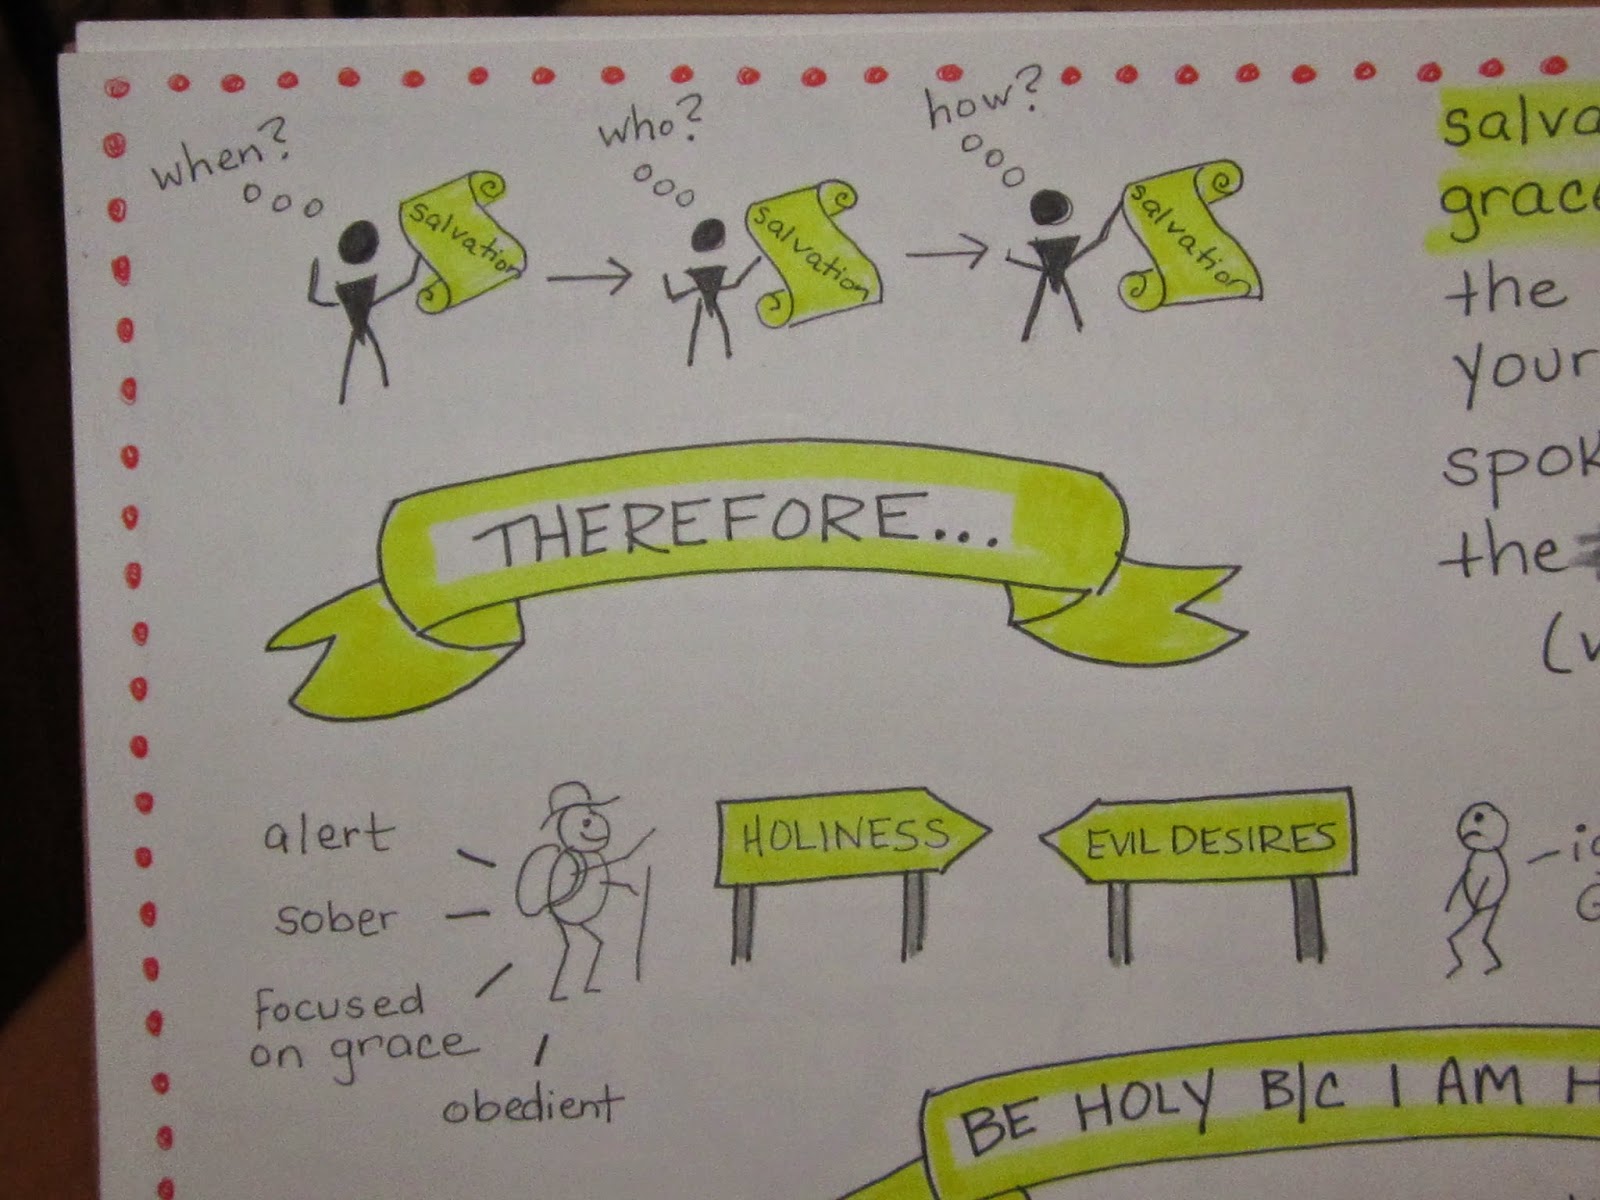 when?
who?
how?
salvation
salvation
salvation
THEREFORE...
the
your
the
alert
sober
focused
on grace
obedient
HOLINESS
EVIL DESIRES
BE HOLY B/C I AM